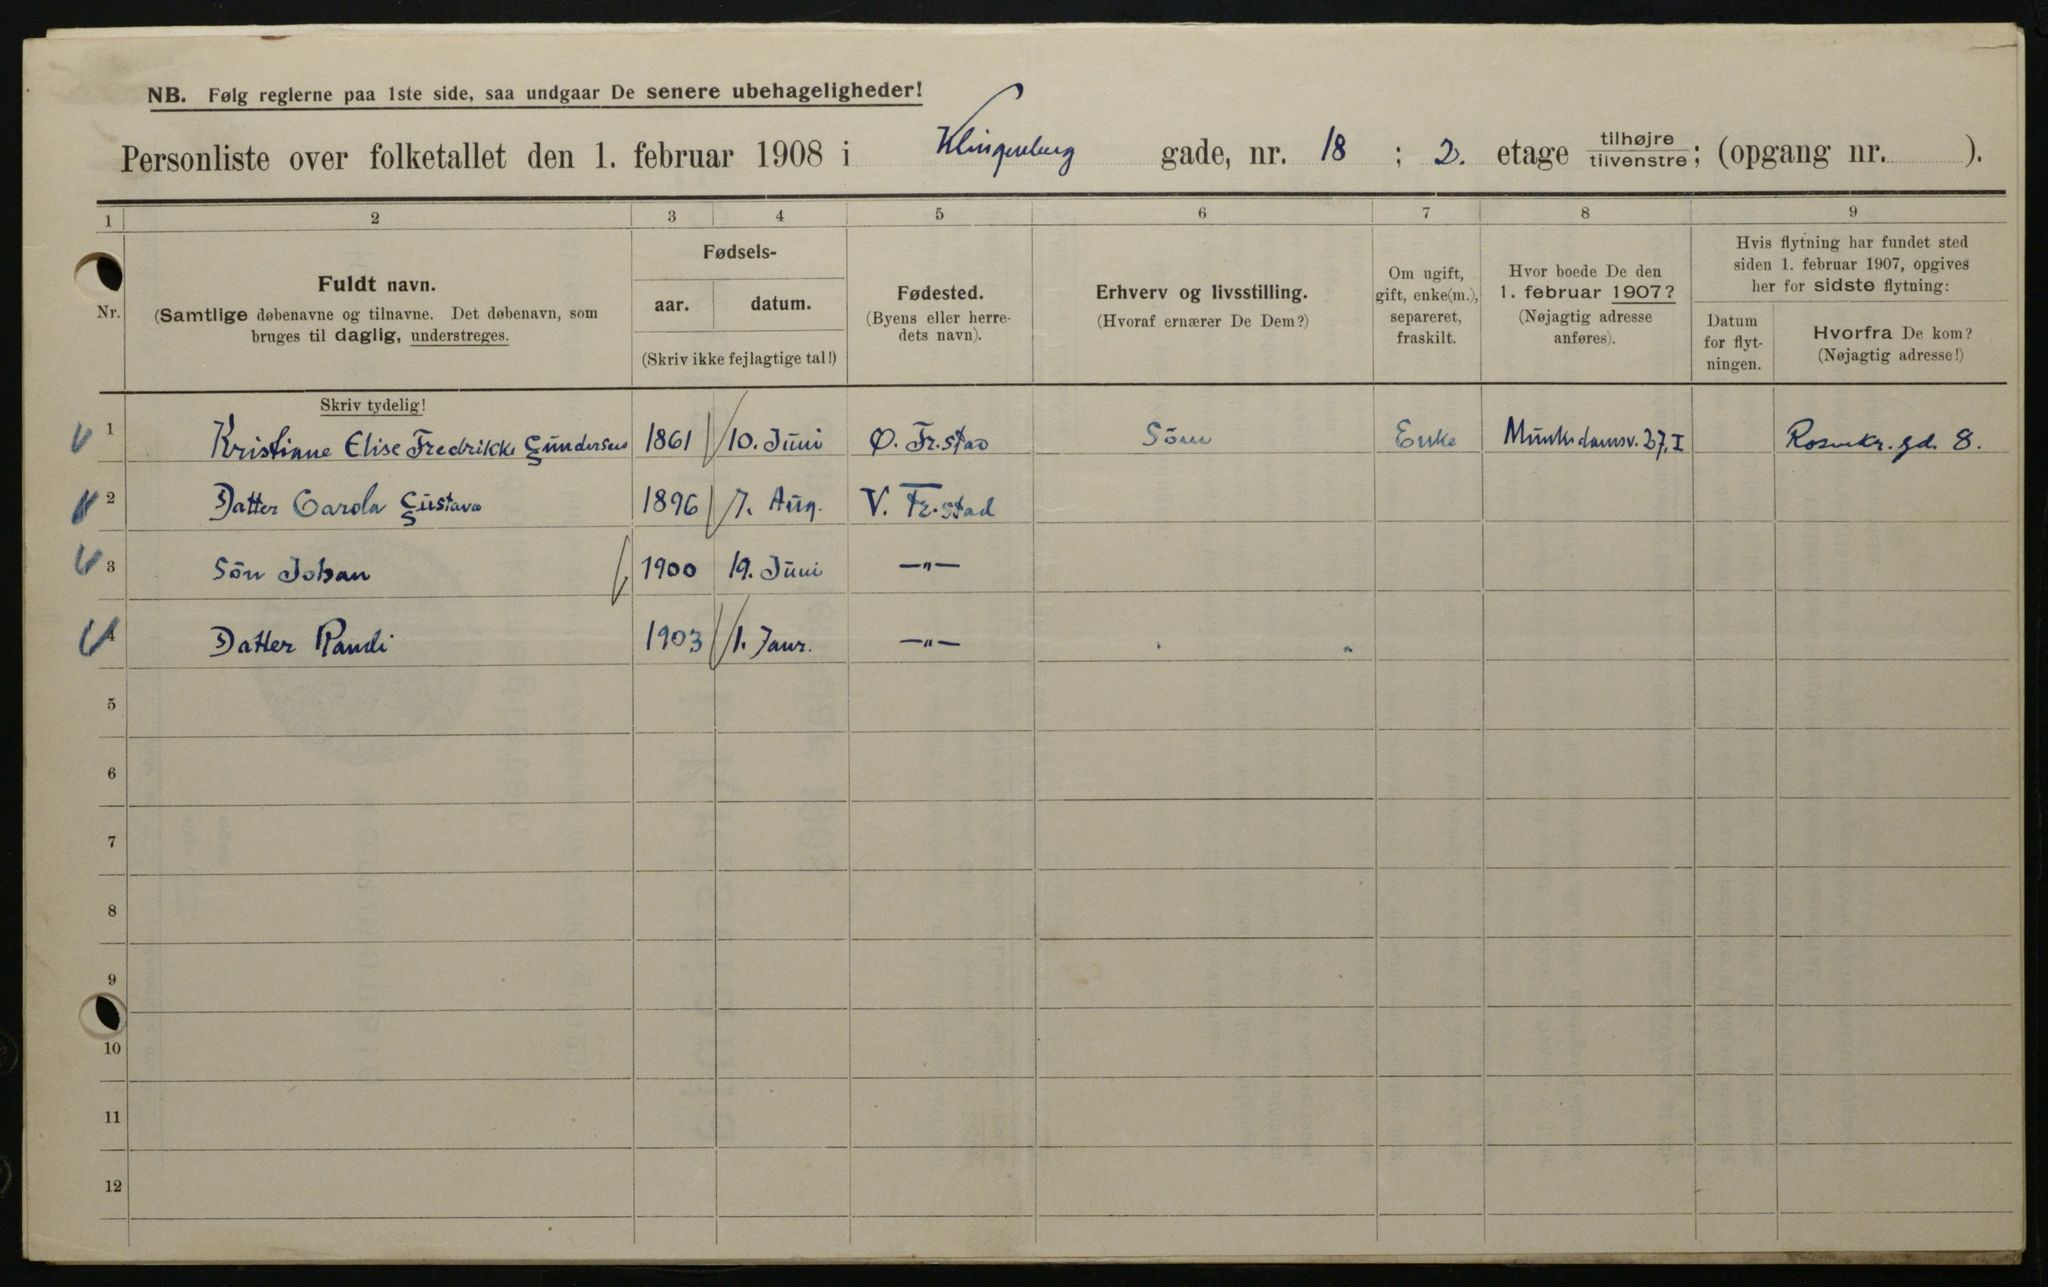 NB. Følg reglerne paa 1ste side, saa undgaar De senere ubehageligheder!
Personliste over folketallet den 1. februar 1908 i Klingenberg gade, nr. 18 ; 2. etage tilhøjre/tilvenstre; (opgang nr. ).
1 2 3 4 5 6 7 8 9
Nr.
Fuldt navn.
(Samtlige døbenavne og tilnavne. Det døbenavn, som
bruges til daglig, understreges.
Fødsels-
aar. datum.
(Skriv ikke fejlagtige tal!)
Fødested.
(Byens eller herre-
dets navn).
Erhverv og livsstilling.
(Hvoraf ernærer De Dem?)
Om ugift,
gift, enke(m.),
separeret,
fraskilt.
Hvor boede De den
1. februar 1907?
(Nøjagtig adresse
anføres).
Hvis flytning har fundet sted
siden 1. februar 1907, opgives
her for sidste flytning:
Datum
for flyt-
ningen.
Hvorfra De kom?
(Nøjagtig adresse!)
Skriv tydelig!
1 Kristiane Elise Fredrikke Gundersen 1861 10. Juni Ø. Fr.stad Söm Enke Munkedamsv. 27. I Rosenkr. gd. 8.
2 Datter Carola Gustava 1896 7. Aug. V. Fr.stad
3 Sön Johan 1900 19. Juni —"—
4 Datter Randi 1903 1. Janr. —"—
5
6
7
8
9
10
11
12